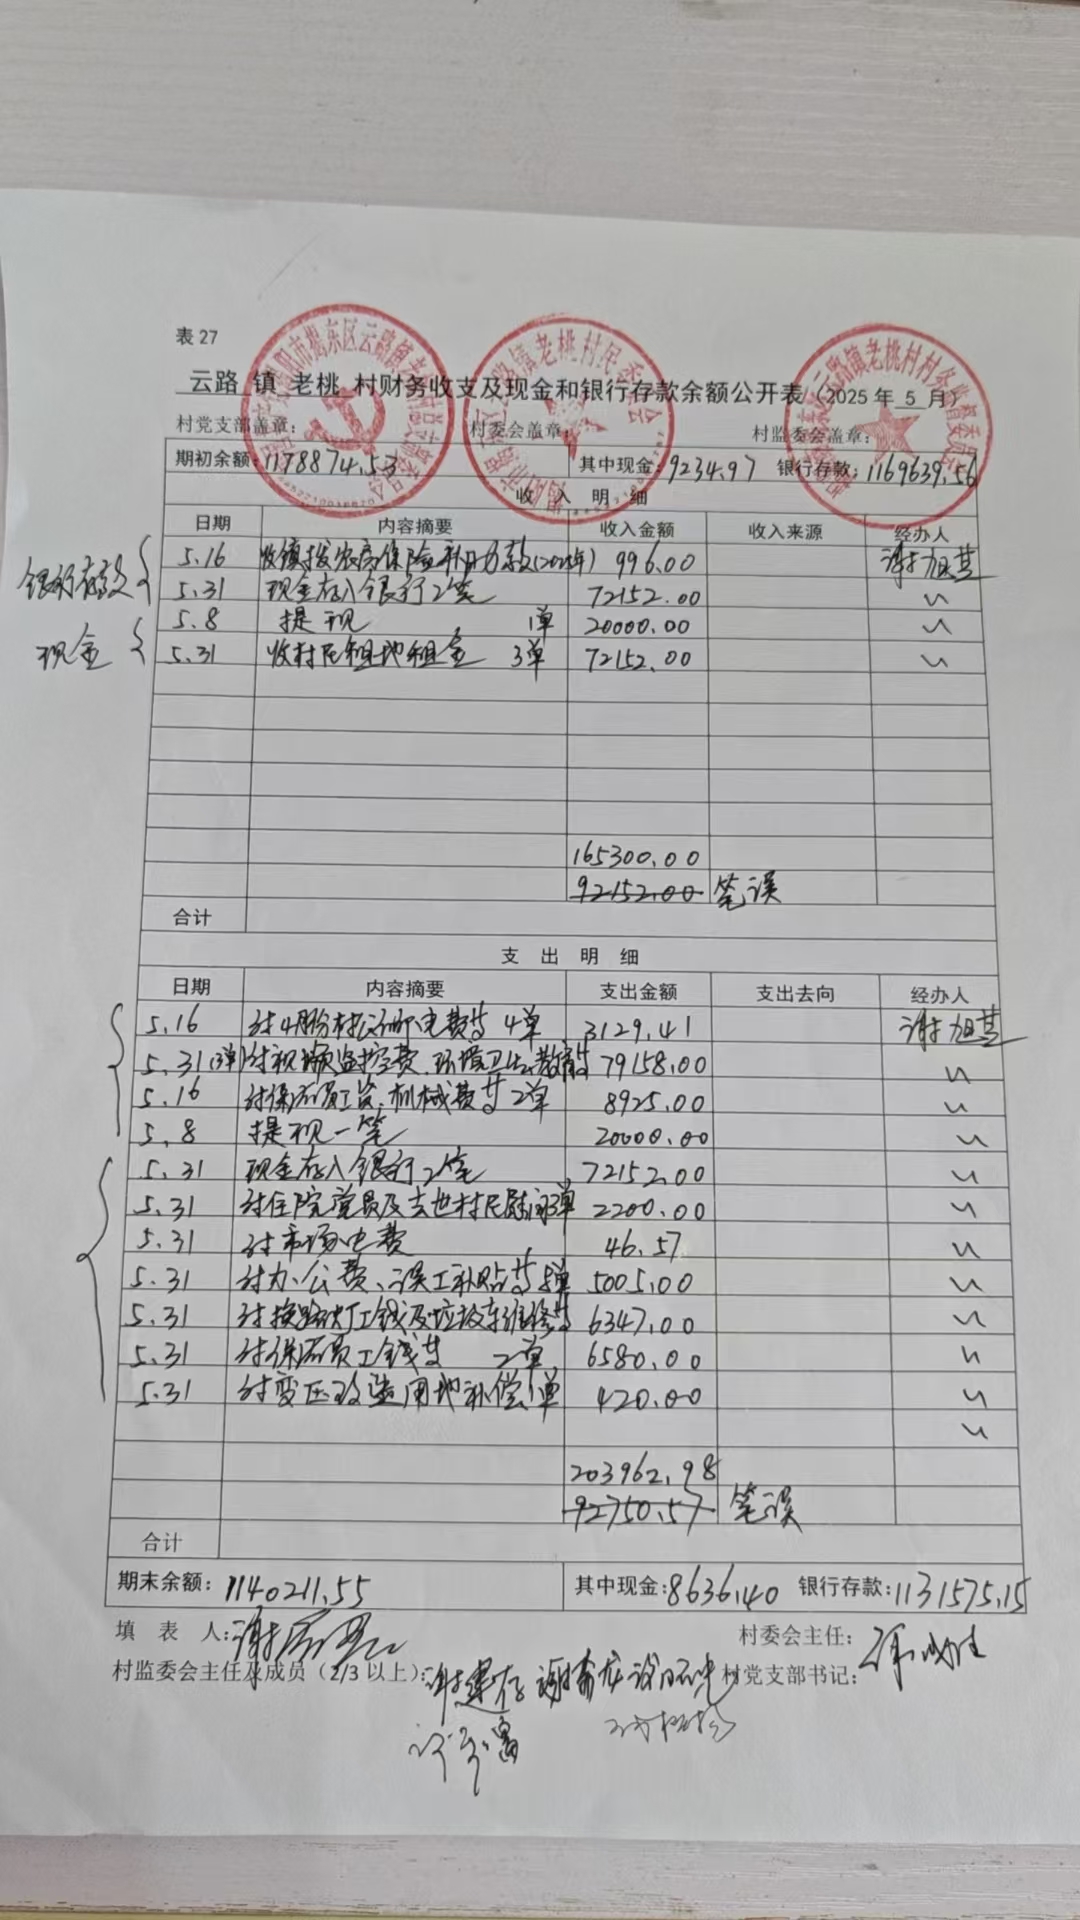 表 27
云路 镇 老桃 村财务收支及现金和银行存款余额公开表（2025 年 5 月）
村党支部盖章： 村委会盖章： 村监委会盖章：
期初余额：1178874.53 其中现金：9234.97 银行存款：1169639.56
收 入 明 细
日期 内容摘要 收入金额 收入来源 经办人
银行存款 5.16 收镇拨农房保险补助款(2025年) 996.00 谢旭芸
5.31 现金存入银行2笔 72152.00 〃
现金 5.8 提现 1单 20000.00 〃
5.31 收村民租地租金 3单 72152.00 〃
165300.00
92152.00 笔误
合计
支 出 明 细
日期 内容摘要 支出金额 支出去向 经办人
5.16 付4月份村 电费等 4单 3129.41 谢旭芸
5.31 (3单)付视频监控费、环境卫生 等 79158.00 〃
5.16 付保洁员工资、机械费等 2单 8925.00 〃
5.8 提现一笔 20000.00 〃
5.31 现金存入银行2笔 72152.00 〃
5.31 付住院党员及去世村民慰问 单 2200.00 〃
5.31 付市场电费 46.57 〃
5.31 付办公费、误工补贴等 单 5005.00 〃
5.31 付换路灯工钱及垃圾车维修等 6347.00 〃
5.31 付保洁员工钱等 2单 6580.00 〃
5.31 付变压改造用地补偿1单 420.00 〃
〃
203962.98
92750.57 笔误
合计
期末余额：1140211.55 其中现金：8636.40 银行存款：1131575.15
填 表 人： 村委会主任：
村监委会主任及成员（2/3 以上）： 村党支部书记：